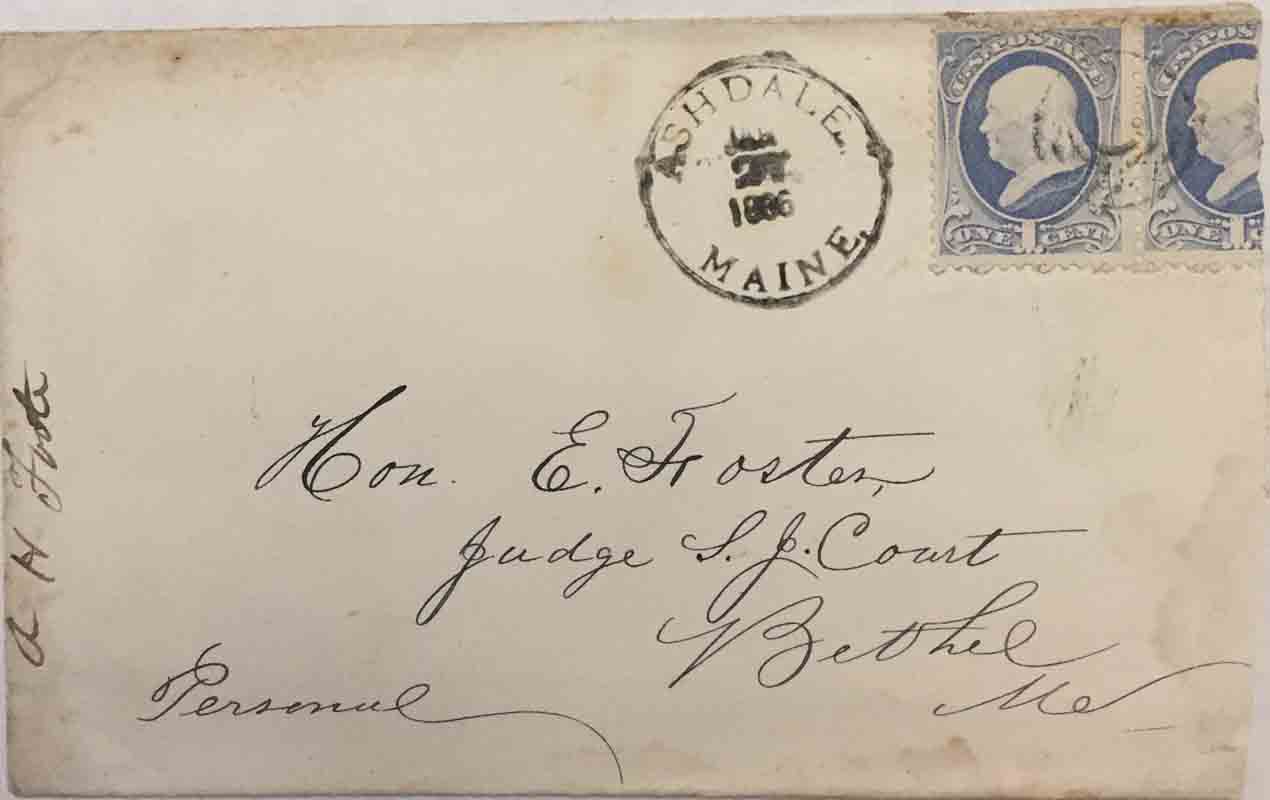 ASHDALE.
1886
MAINE.
U.S. POSTAGE
ONE 1 CENT
U.S. POS
ONE 1
Hon. E. Foster,
Judge S. J. Court
Bethel
Me
Personal
A H